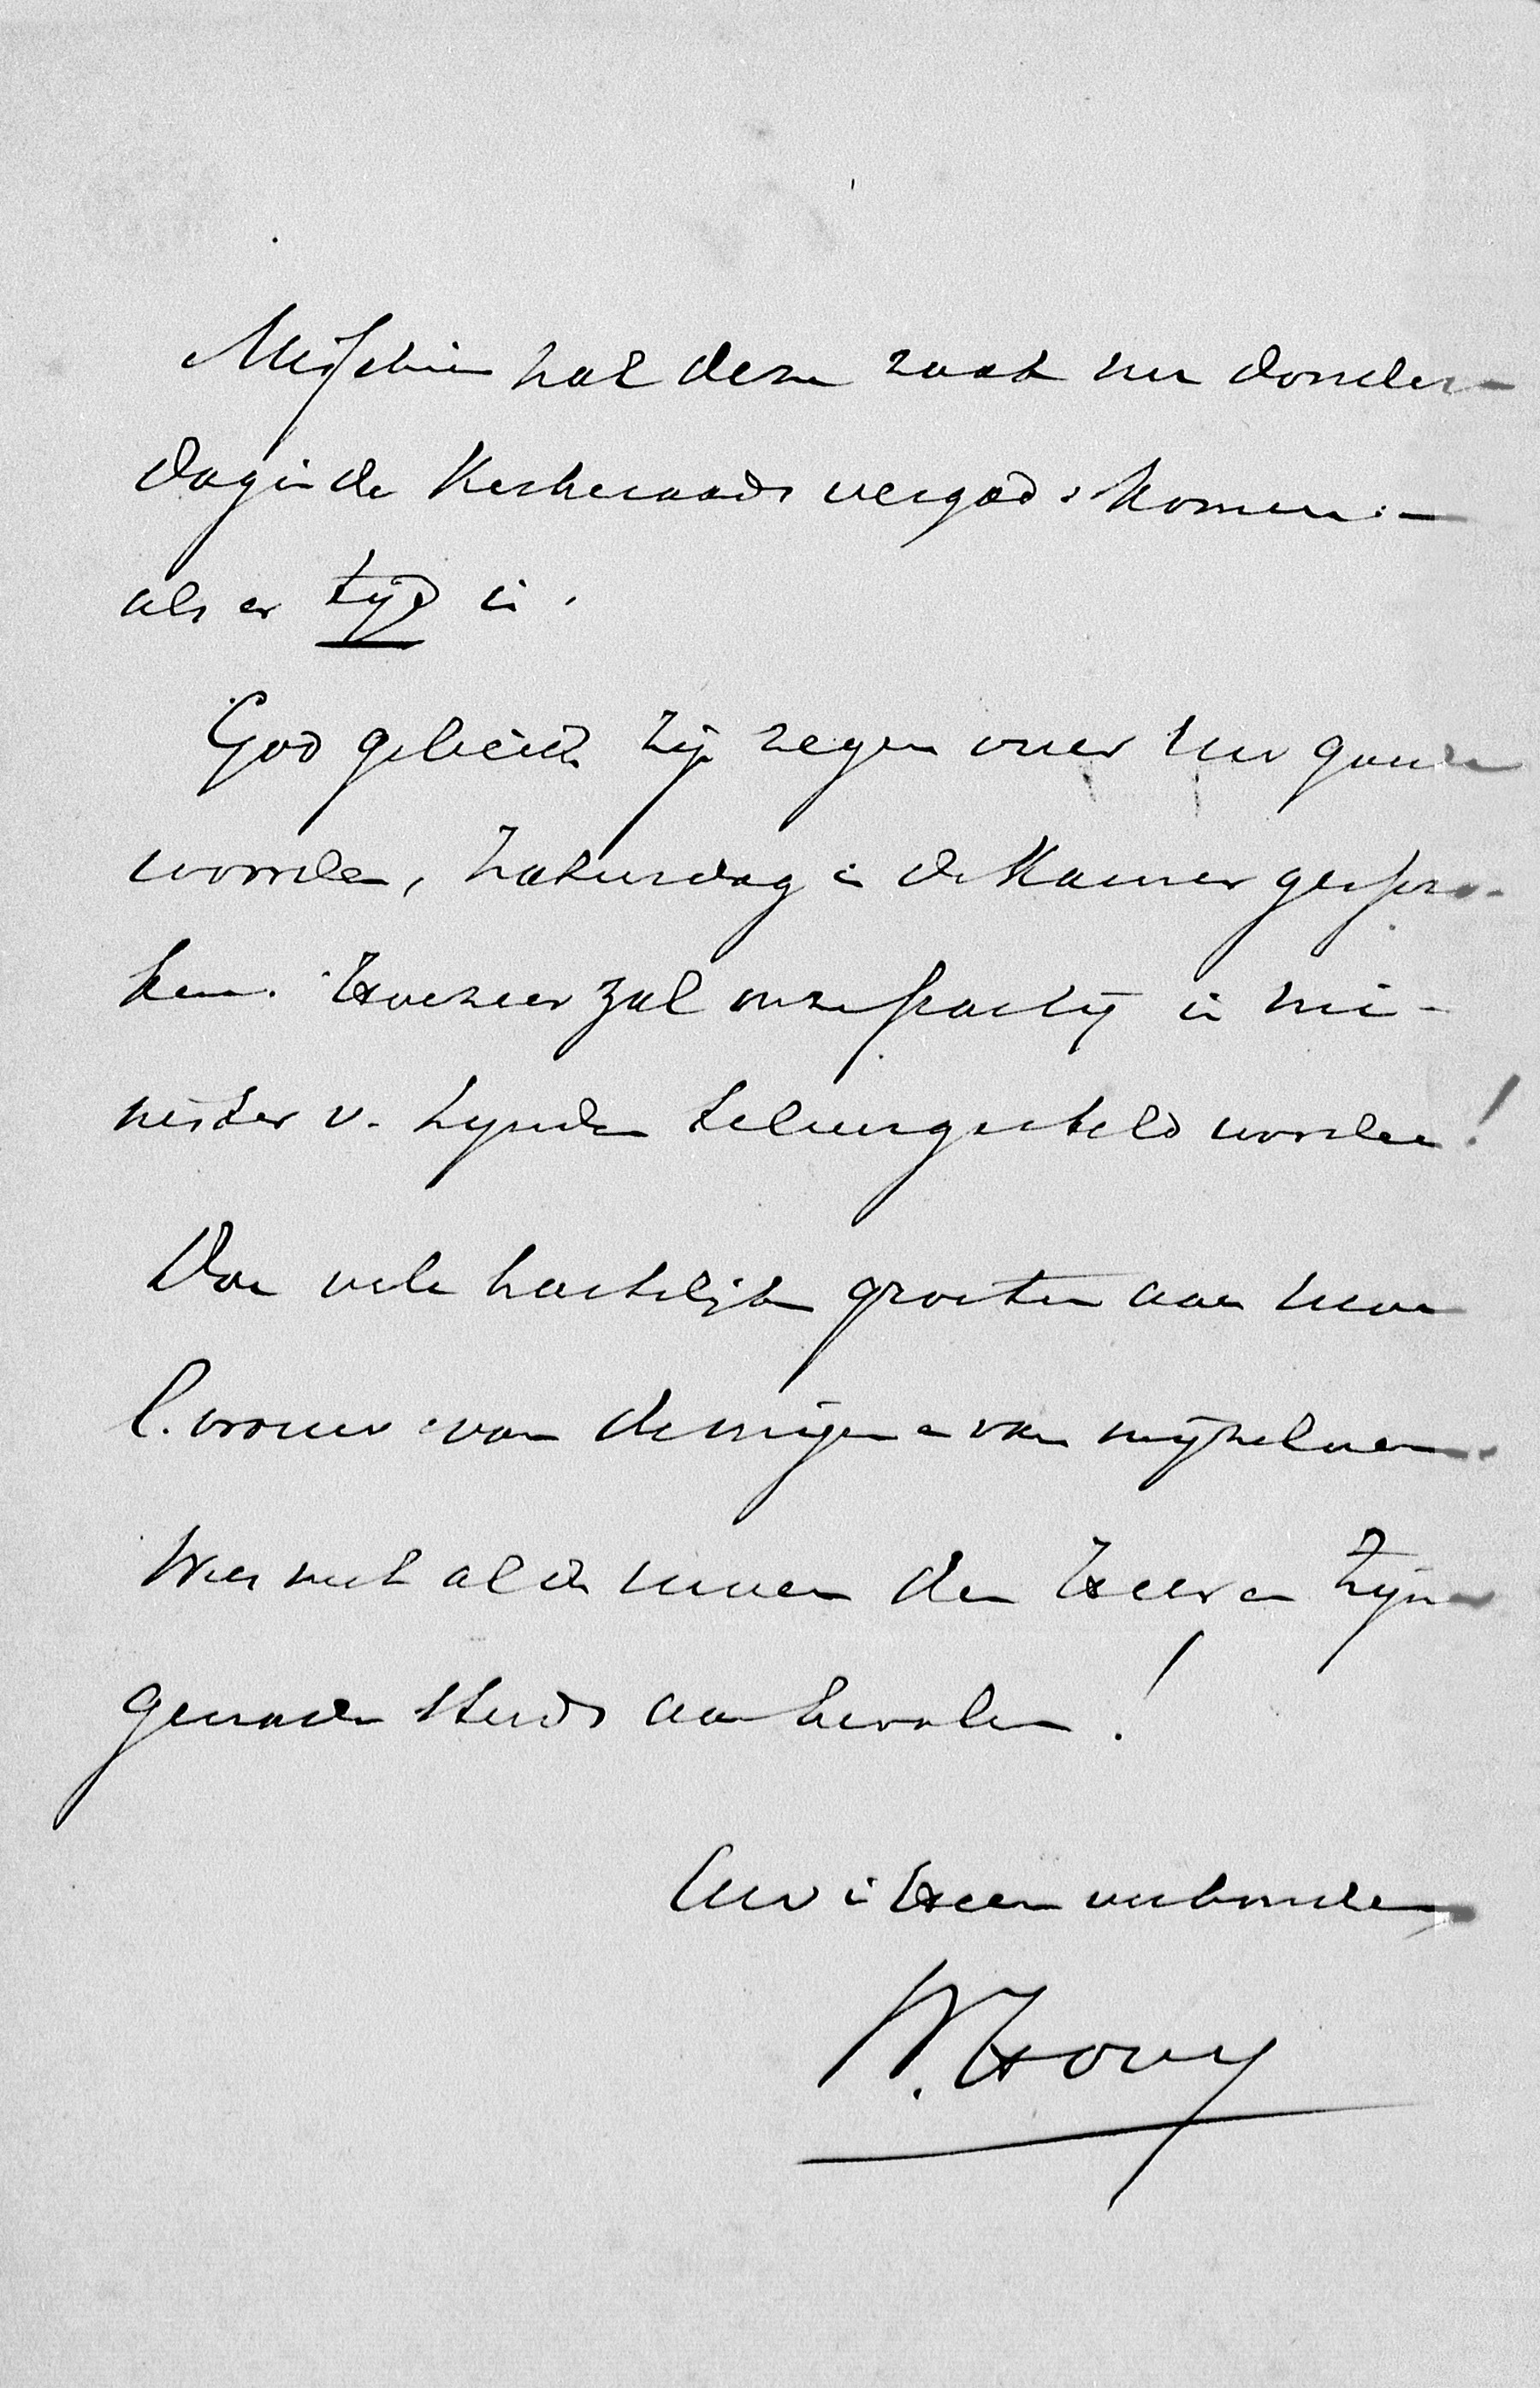 Misschien zal deze zaak nu donder-
dag in de Kerkeraads vergad: komen: –
als er tijd is.
God gebiede zijn zegen over uw gouden
woorden, Zaturdag in de Kamer gespro-
ken. Hoezeer zal onze partij in mi-
nister v. Lynden teleurgesteld worden!
Doe vele hartelijke groeten aan uwe
l. vrouw van de mijnen en van mijzelven.
Wees met al de uwen den Heer en Zijne
genade steeds aanbevolen!
Uw in Heere verbonden
W. Hovy